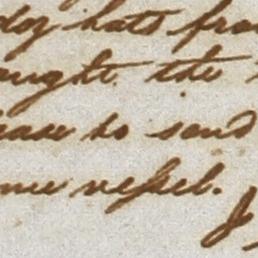 dog hats from
ought the
ease to send
me vessel.
J